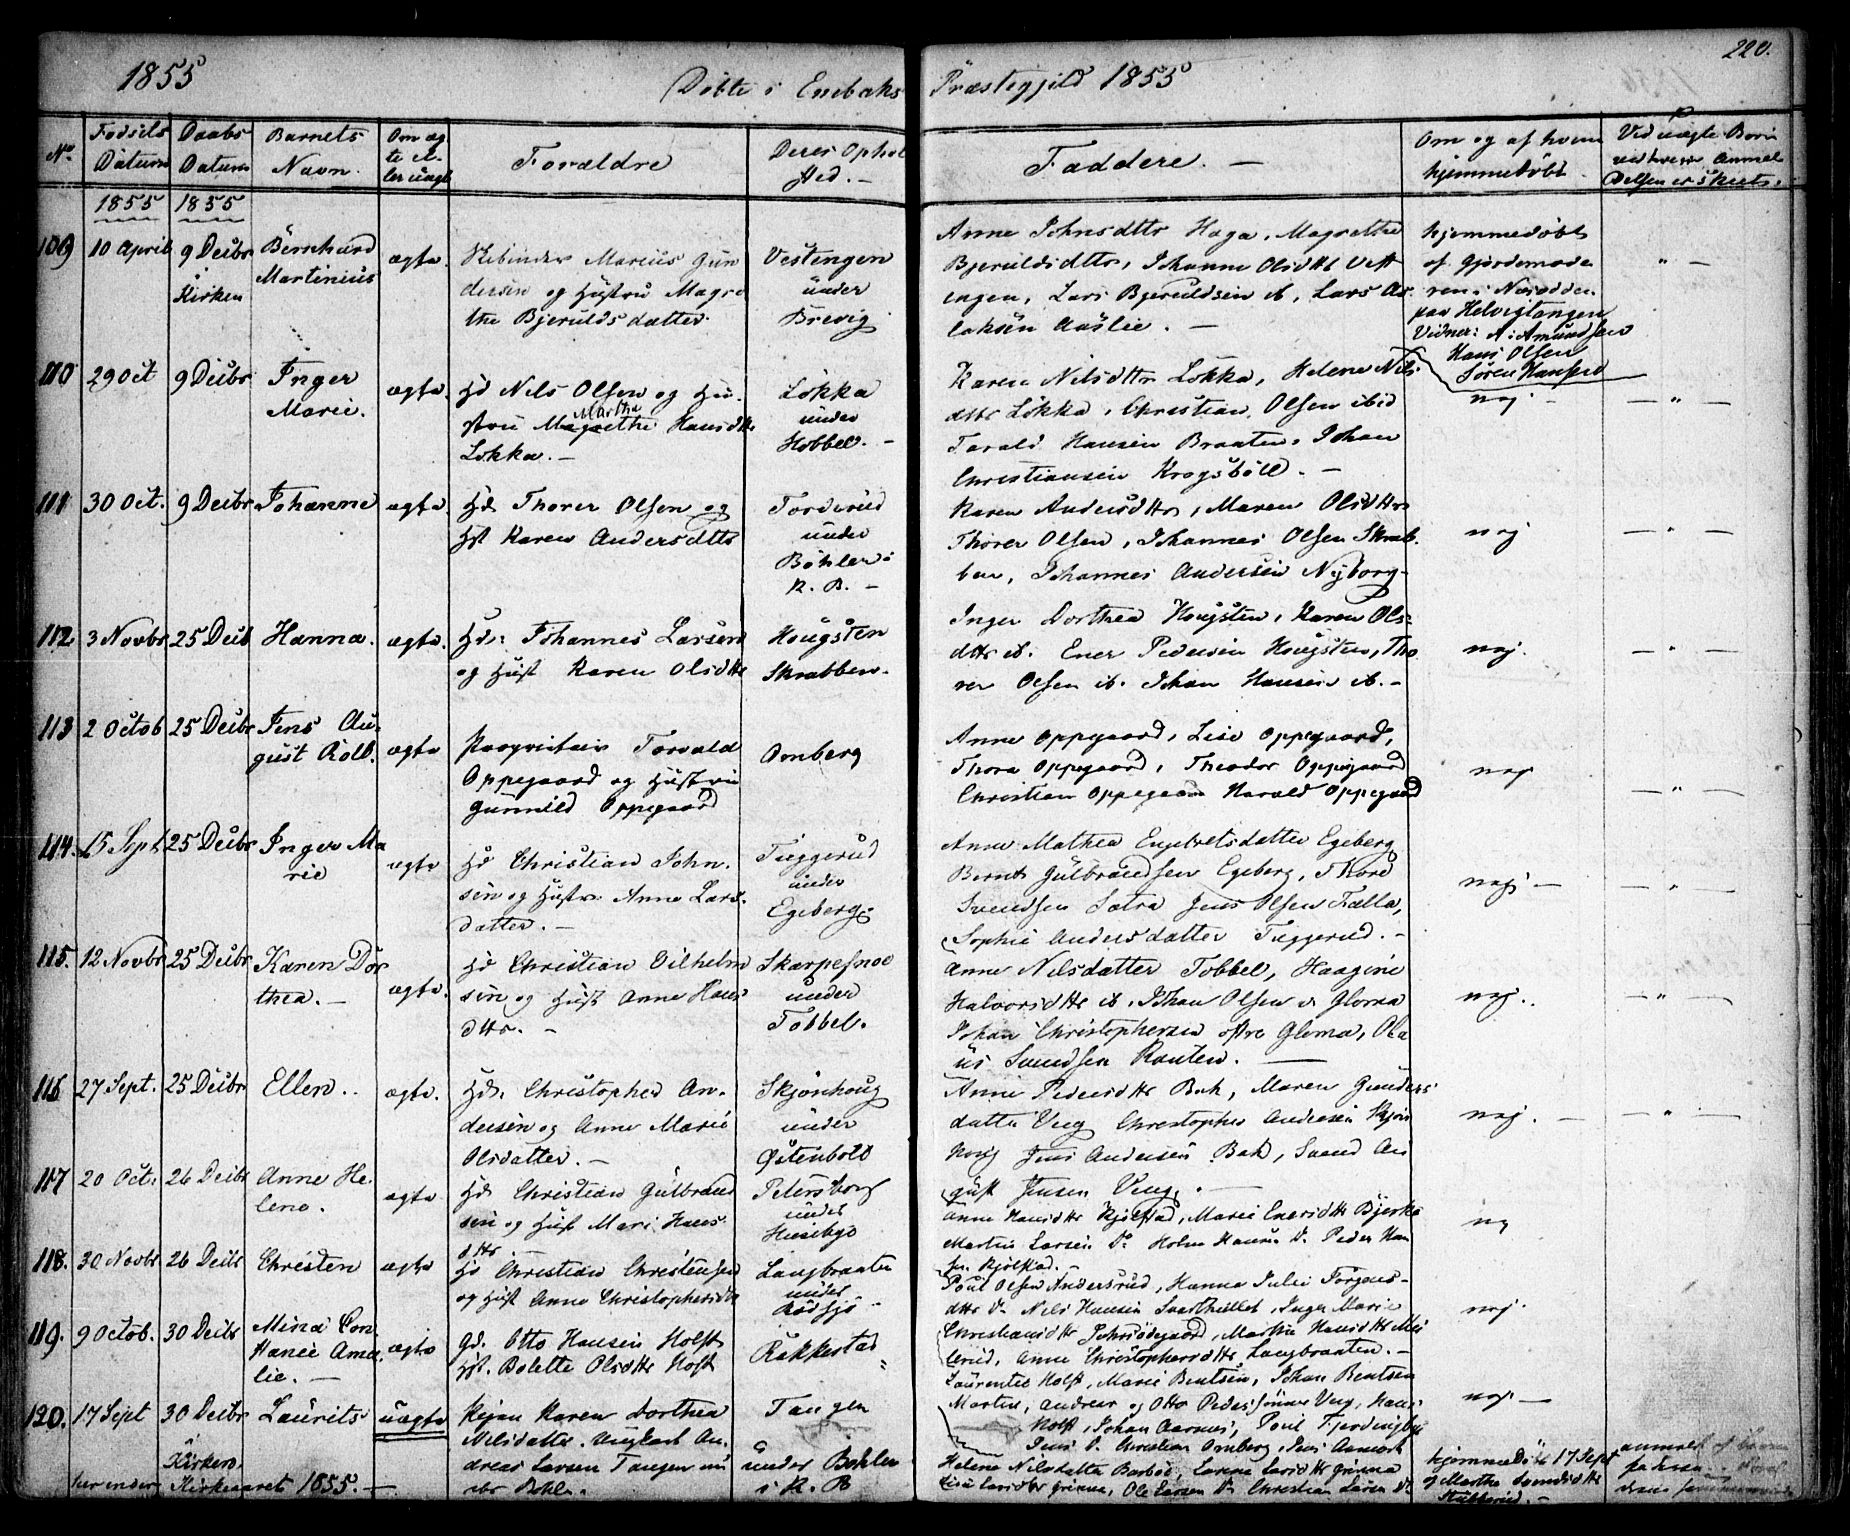 1855
Döbte i Enebaks Præstegjeld 1855
220.
No
Fødsels Datum
Daabs Datum
Barnets Navn.
Om ægte el- ler uægt
Forældre
Deres Ophol sted. —
Faddere. —
Om og af hvem hjemmedöbt.
Ved uægte Börn ved hvem Anmel delsen er skeet.
1855 1855
109 10 April 9 Decbr i Kirken
Bernhard Martinius
ægte.
Marius Gun dersen og Hustru Magre the Bjerulds datter.
Vestengen under Brevig
Anne Johnsdttr Haga, Magrethe
Bjeruldsdttr, Johanne Olsdttr Vest
engen, Lars Bjeruldsen ib, Lars As-
laksen Aaslie. —
hjemmedöbt
af Gjordemode
ren i Nesodden
paa Helvigtangen
Vidner: A: Amundsen
Hans Olsen
Sören Hansen
110 29 Oct 9 Decbr
Inger Marie.
ægte.
Hd Nels Olsen og Hu-
stru Magrethe Martha Hansdttr
Lökka. —
Lökka under Hobbel. —
Karen Nilsdttr Lökka, Helene Nils
dttr Lökka, Christian Olsen ibid
Torald Hansen Braaten, Johan
Christiansen Krogsböll. —
nej — " —
111 30 Oct. 9 Decbr Johanne
ægte.
Hd. Thorer Olsen og
Hst Karen Andersdttr
Torderud under Böhler i R. B. —
Karen Andersdttr, Maren Olsdttr
Thorer Olsen, Johannes Olsen Skrab-
ben, Johannes Andersen Nyborg-
nej — " —
112 3 Novbr 25 Decb Hanna.
ægte.
Hd. Johannes Larsen
og Hust Karen Olsdttr
Hougsten Skrabben.
Inger Dorthea Hougsten, Karen Ols-
dttr ib. Ener Pedersen Hougsten, Tho
rer Olsen ib. Johan Hansen ib. —
nej. — " —
113 2 Octob 25 Decbr
Jens Au- gust Rolb.
ægte
Proprietair Torvald
Oppegaard og Hustru
Gunnild Oppegaard
Omberg
Anne Oppegaard, Lise Oppegaard,
Thora Oppegaard, Theodor Oppegaard
Christian Oppegaard Harald Oppegaard
nej — " —
114. 15 Sept 25 Decbr
Inger Ma rie
ægte
Hd Christian John-
sen og Hustru Anne Lars-
datter. —
Tuggerud under Egeberg.
Anne Mathea Engebretsdatter Egeberg
Bernt Gulbrandsen Egeberg, Thord
Svendsen Sætra Jens Olsen Fælla,
Sophie Andersdatter Tuggerud. —
nej — — " —
115. 12 Novbr 25 Decbr
Karen Dor thea. —
ægte.
Hd Christian Vilhelm
sen og Hust Anne Hans
dttr. —
Skarpesnoe under Tobbel.
Anne Nilsdatter Tobbel, Haagine
Halvorsdttr ib. Johan Olsen v Gloma
Johan Christophersen østre Gloma, Ola
us Svendsen Rauten. —
nej. — " —
116 27 Sept. 25 Decbr Ellen.
ægte.
Hd. Christopher An-
dersen og Anne Marie
Olsdatter. —
Skjönhoug under Østenbold
Anne Pedersdttr Bak, Maren Gunders
datter Veug Christopher Andersen Skjön
houg Jens Andersen Bak, Svend Au
gust Jensen Veug. —
nej. — — " —
117 20 Octr 26 Decbr
Anne He- lene.
ægte
Hd Christian Gulbrand
sen og Hust Mari Hans
dttr
Petersborg under Huseby
Anne Hansdttr Kjölstad, Marie Enersdttr Bjerke
Martin Larsen Do Holm Hansen Do. Peder Han
sen Kjölstad. —
nej
118. 30 Novbr 26 Decbr Christen
ægte
Hd Christian Christensen
og Hust Anne Christophersdttr
Langbraaten under Rödsjö
Poul Olsen Andersrud, Hanna Julie Jörgens-
dttr Do. Nils Hansen Svarthullet, Inger Marie
Christiansdttr, Marthe Hansdttr
Anne Christophersdttr Langbraaten. —
nej.
119. 9 Octob. 30 Decbr
Mina Con stance Ama- lie. —
ægte
Gd. Otto Hansen Holst
Hst. Bolette Olsdttr Holst
Rakkestad "
Laurentie Holst, Marie Bentsen, Johan Bentsen
Martin, Andreas og Otto Peders sönner Veug, Hans
Holst, Johan Aarnæs, Poul Fjerdingby
Jens Do. Christian Omberg, Jens
nej. —
120. 17 Sept 30 Decbr i Kirken.
Laurits
uægte
Pigen Karen Dorthea
Nilsdatter. Ungkarl An-
dreas Larsen Tangen un
der Bohler.
Tangen under Bohler i R. B
Helene Nilsdatter, Larine Larsdttr Grinna
Lise Larsdttr Grinna, Ole Larsen Do Christian Larsen Do
hjemmedöbt 17 Sept
af Marthe Svendsdttr
anmeldt af Barne
faderen
her ender Kirkeaaret 1855. —